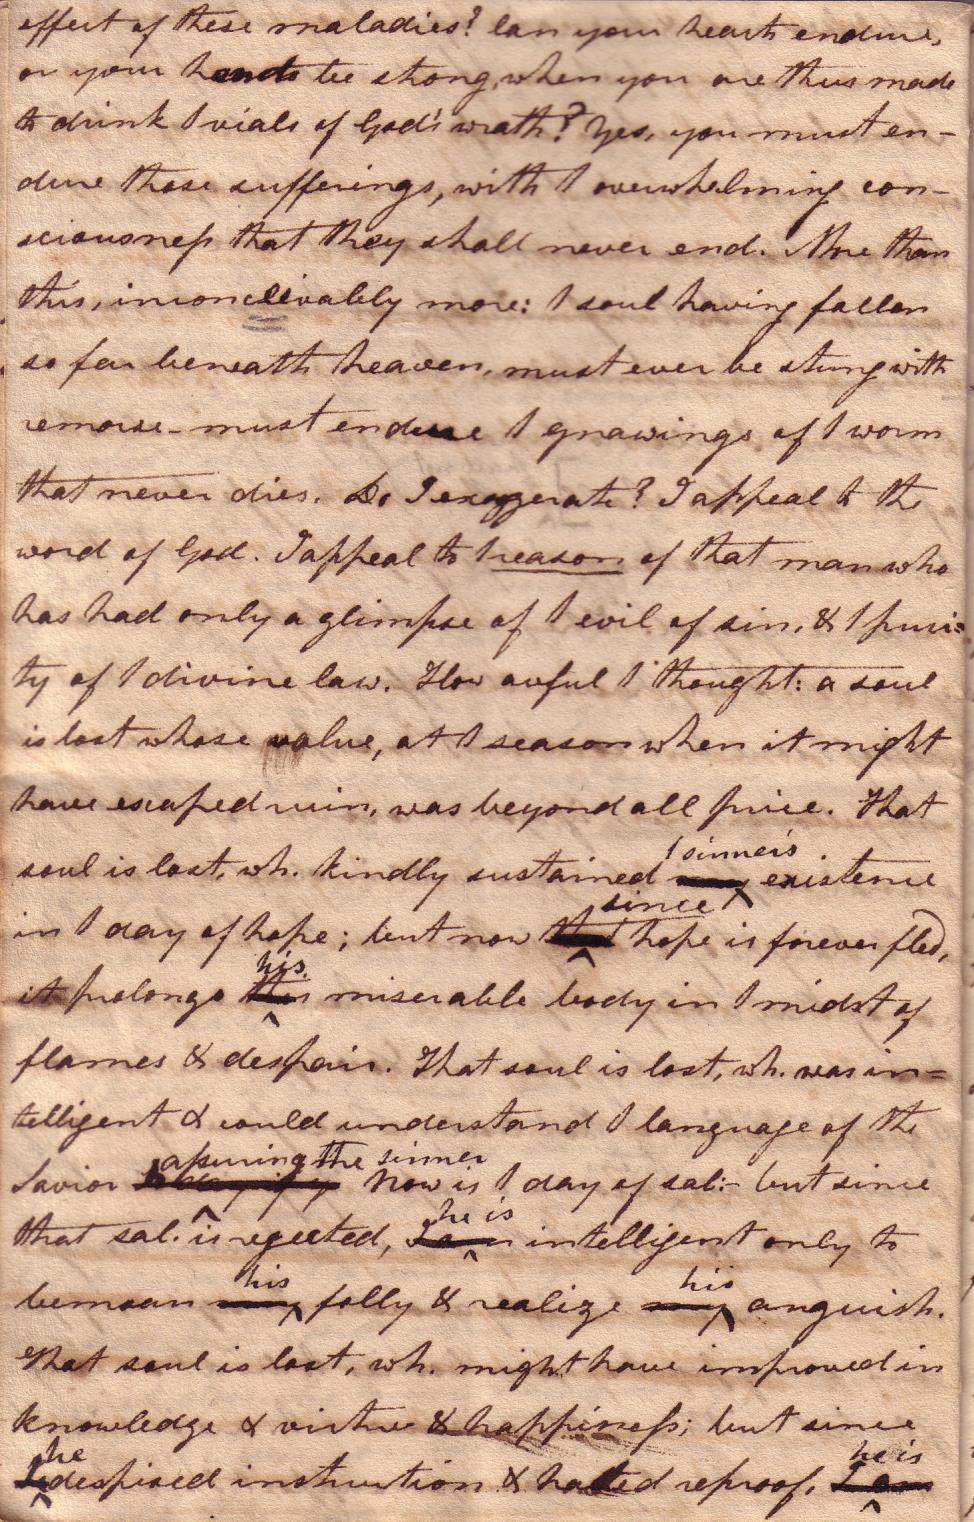 effect of these maladies? Can your heart endure,
or your hands be strong, when you are thus made
to drink / vials of God's wrath? Yes, you must en-
dure those sufferings, with / overwhelming con-
sciousness that they shall never end. More than
this, inconceivably more: / soul having fallen
so far beneath heaven, must ever be stung with
remorse - must endure / gnawings of / worm
that never dies. Do I exaggerate? I appeal to the
word of God. I appeal to / reason of that man who
has had only a glimpse of / evil of sin, & / puri=
ty of / divine law. How awful / thought: a soul
is lost whose value, at / season when it might
have escaped ruin, was beyond all price. That
/ sinner's
soul is lost, wh. kindly sustained my existence
since
in / day of hope; but now that hope is forever fled,
his
it prolongs this miserable body in / midst of
flames & despair. That soul is lost, wh. was in=
telligent & could understand / language of the
assuring the sinner
Savior Now is / day of sal:- but since
he is
that sal. is rejected, I am intelligent only to
his his
bemoan my folly & realize my anguish.
That soul is lost, wh. might have improved in
knowledge & virtue & happiness; but since
he he is
I despised instruction & hated reproof, I am